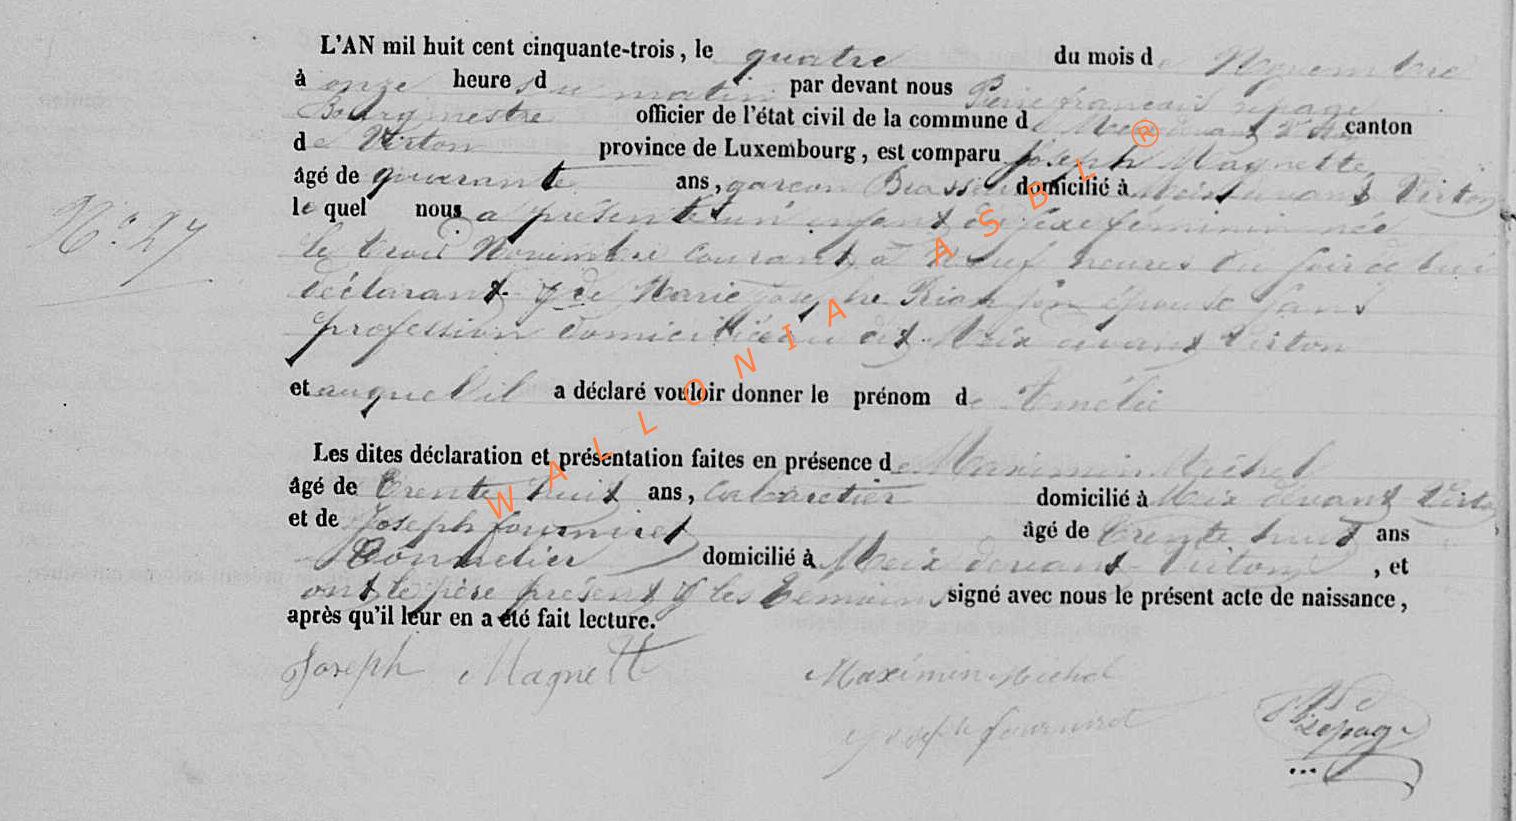 L'AN mil huit cent cinquante-trois, le quatre du mois de Novembre
à onze heures du matin par devant nous Pierre françois Lepage
Bourgmestre officier de l'état civil de la commune de Meix devant Virton canton
de Virton province de Luxembourg, est comparu Joseph Magnette
âgé de quarante ans, garçon Brasseur domicilié à Meix devant Virton
lequel nous a présenté un enfant du sexe feminin née
N° 27
le trois Novembre courant à neuf heures du soir de lui
déclarant & de Marie Josephe son épouse sans
profession domiciliée au dit Meix devant Virton
et auquel il a déclaré vouloir donner le prénom de Amélie
Les dites déclaration et présentation faites en présence de Maximin Michel
âgé de trente huit ans, cabaretier domicilié à Meix devant Virton
et de Joseph fourniret âgé de trente huit ans
domicilié à Meix devant Virton, et
ont le père présent & les témoins signé avec nous le présent acte de naissance,
après qu'il leur en a été fait lecture.
Joseph Magnett Maximin Michel
Joseph fourniret Lepage
WALLONIA ASBL ®